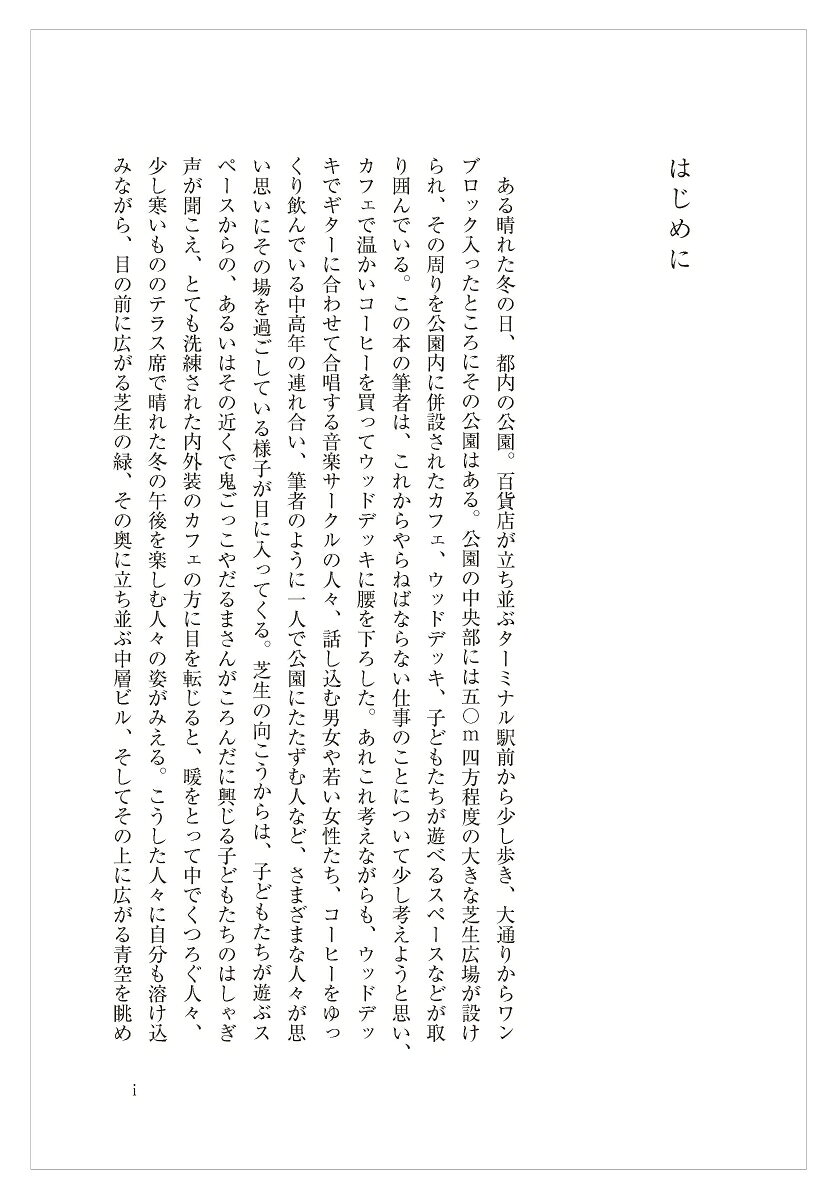 はじめに
ある晴れた冬の日、都内の公園。百貨店が立ち並ぶターミナル駅前から少し歩き、大通りからワン
ブロック入ったところにその公園はある。公園の中央部には五〇m四方程度の大きな芝生広場が設け
られ、その周りを公園内に併設されたカフェ、ウッドデッキ、子どもたちが遊べるスペースなどが取
り囲んでいる。この本の筆者は、これからやらねばならない仕事のことについて少し考えようと思い、
カフェで温かいコーヒーを買ってウッドデッキに腰を下ろした。あれこれ考えながらも、ウッドデッ
キでギターに合わせて合唱する音楽サークルの人々、話し込む男女や若い女性たち、コーヒーをゆっ
くり飲んでいる中高年の連れ合い、筆者のように一人で公園にたたずむ人など、さまざまな人々が思
い思いにその場を過ごしている様子が目に入ってくる。芝生の向こうからは、子どもたちが遊ぶス
ペースからの、あるいはその近くで鬼ごっこやだるまさんがころんだに興じる子どもたちのはしゃぎ
声が聞こえ、とても洗練された内外装のカフェの方に目を転じると、暖をとって中でくつろぐ人々、
少し寒いもののテラス席で晴れた冬の午後を楽しむ人々の姿がみえる。こうした人々に自分も溶け込
みながら、目の前に広がる芝生の緑、その奥に立ち並ぶ中層ビル、そしてその上に広がる青空を眺め
i